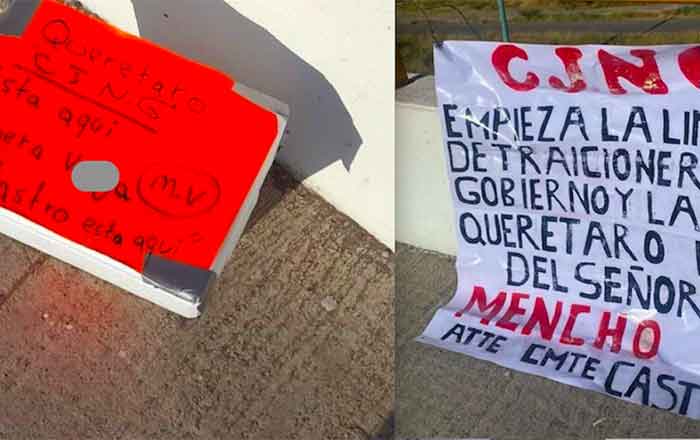 Querétaro
CJNG
esta aqui
M.V
esta aqui"
CJNG
EMPIEZA LA LIM
DE TRAICIONER
GOBIERNO Y LA
QUERETARO
DEL SEÑOR
MENCHO
ATTE CMTE CAST